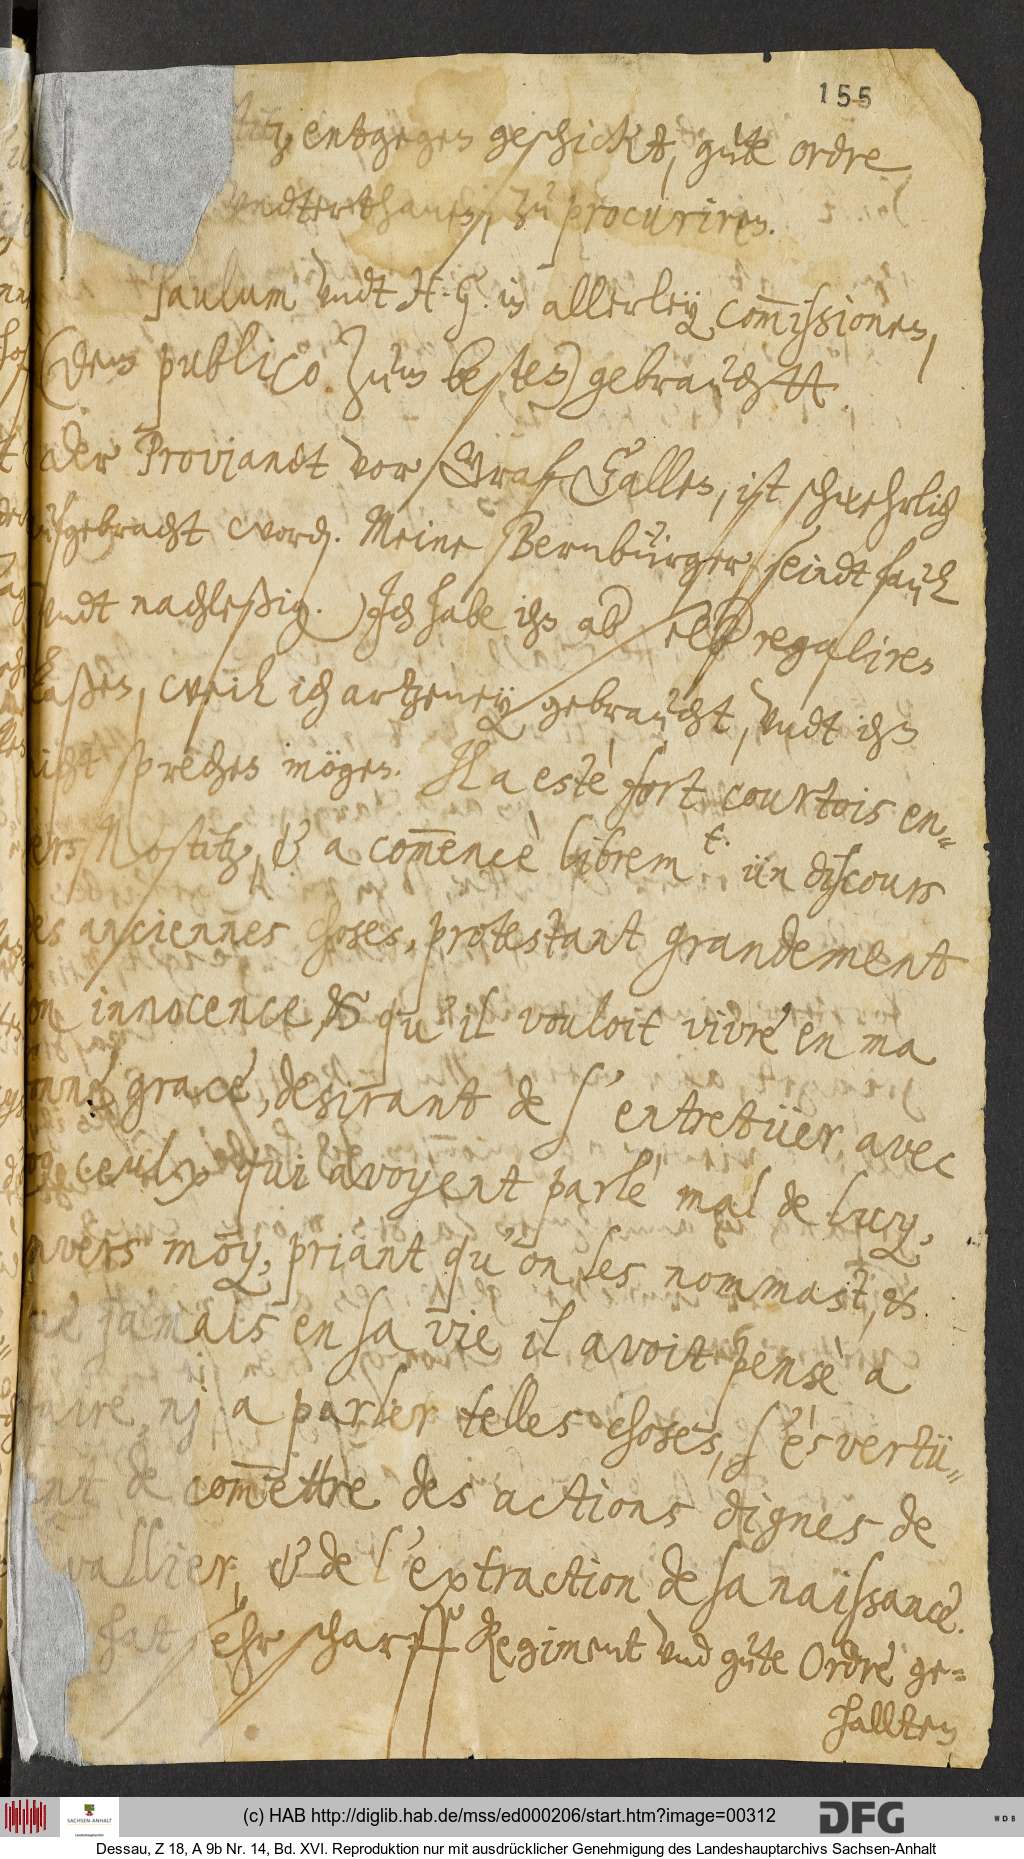 155
entgegen geschickt, gute ordre
vndterthanen, zu procuriren.
Saulum vndt H: G. in allerley com̄issionen,
(dem publico zum besten) gebrauchtt.
der Proviandt vor Graf Gallen, ist schwehrlich
aufgebracht word. Meine Bernburger seindt faul
vndt nachleßig. Ich habe ihn ab regaliren
laßen, weil ich artzeney gebraucht, vndt ihn
nicht sprechen mögen. Il a estè fort courtois en-
vers Nostitz, & a com̄encè librem.t ün discours
des anciennes choses, protestant grandement
son innocence, & qu'il vouloit vivre en ma
bonne grace, desirant de s'entretüer avec
ceulx qui avoyent parlè mal de luy,
envers moy, priant qu'on les nommast, &
que jamais en sa vie il avoit pensè a
faire, nj a parler telles choses, s'esvertü-
ant de com̄ettre des actions dignes de
Cavallier, & de l'extraction de sa naissance.
hat sehr scharff Regiment vnd gute Ordre ge-
hallten
(c) HAB http://diglib.hab.de/mss/ed000206/start.htm?image=00312
SACHSEN-ANHALT
DFG
WDB
Dessau, Z 18, A 9b Nr. 14, Bd. XVI. Reproduktion nur mit ausdrücklicher Genehmigung des Landeshauptarchivs Sachsen-Anhalt